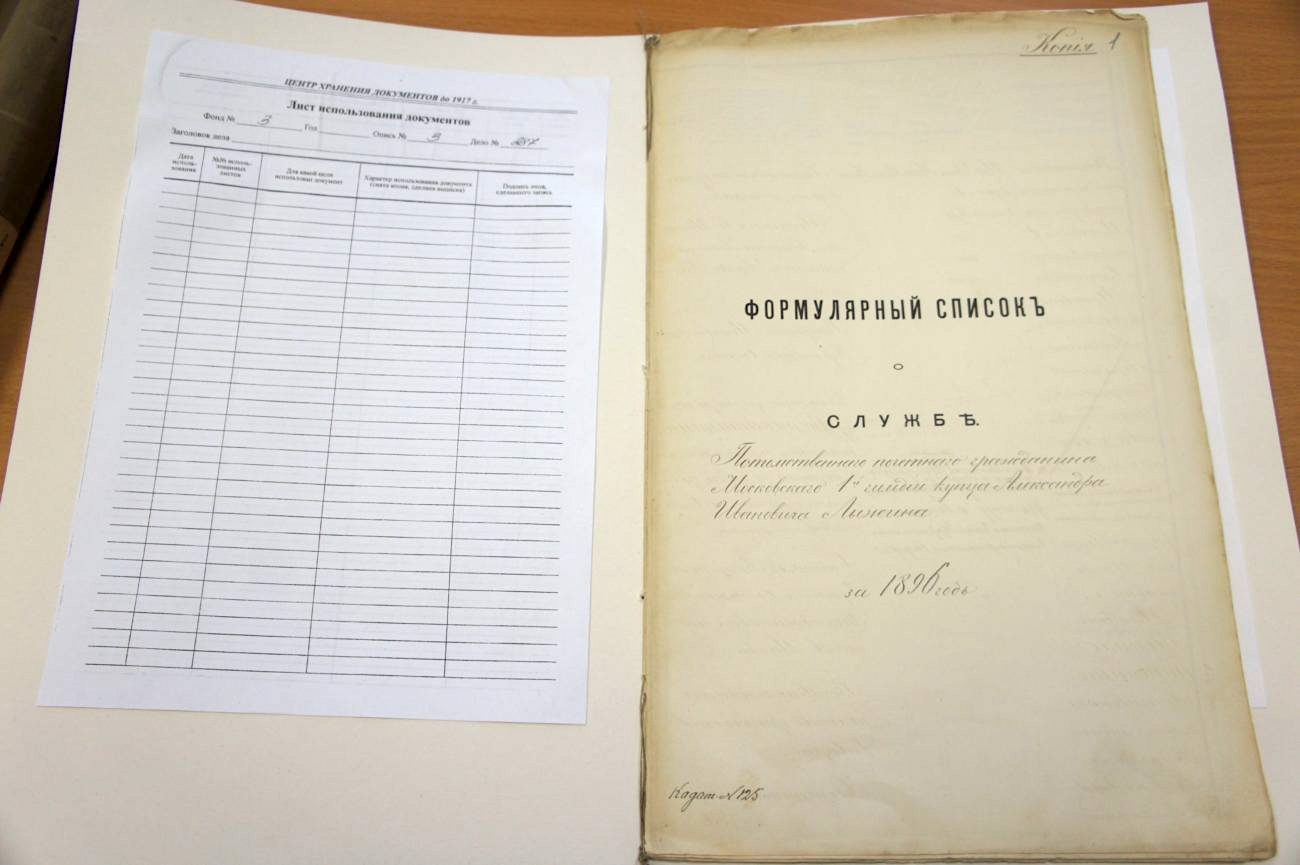 ЦЕНТР ХРАНЕНИЯ ДОКУМЕНТОВ до 1917 г.
Лист использования документов
Фонд № 3 Год Опись № 3 Дело № 287
Заголовок дела
Дата исполь-зования
№№ исполь-зованных листов
Для какой цели использован документ
Характер использования документа (снята копия, сделана выписка)
Подпись лица, сделавшего запись
Копія 1
ФОРМУЛЯРНЫЙ СПИСОКЪ
О
СЛУЖБѢ.
Потомственнаго почетнаго гражданина
Московскаго 1й гильдіи купца Александра
Ивановича
за 1896 годъ
№ 125